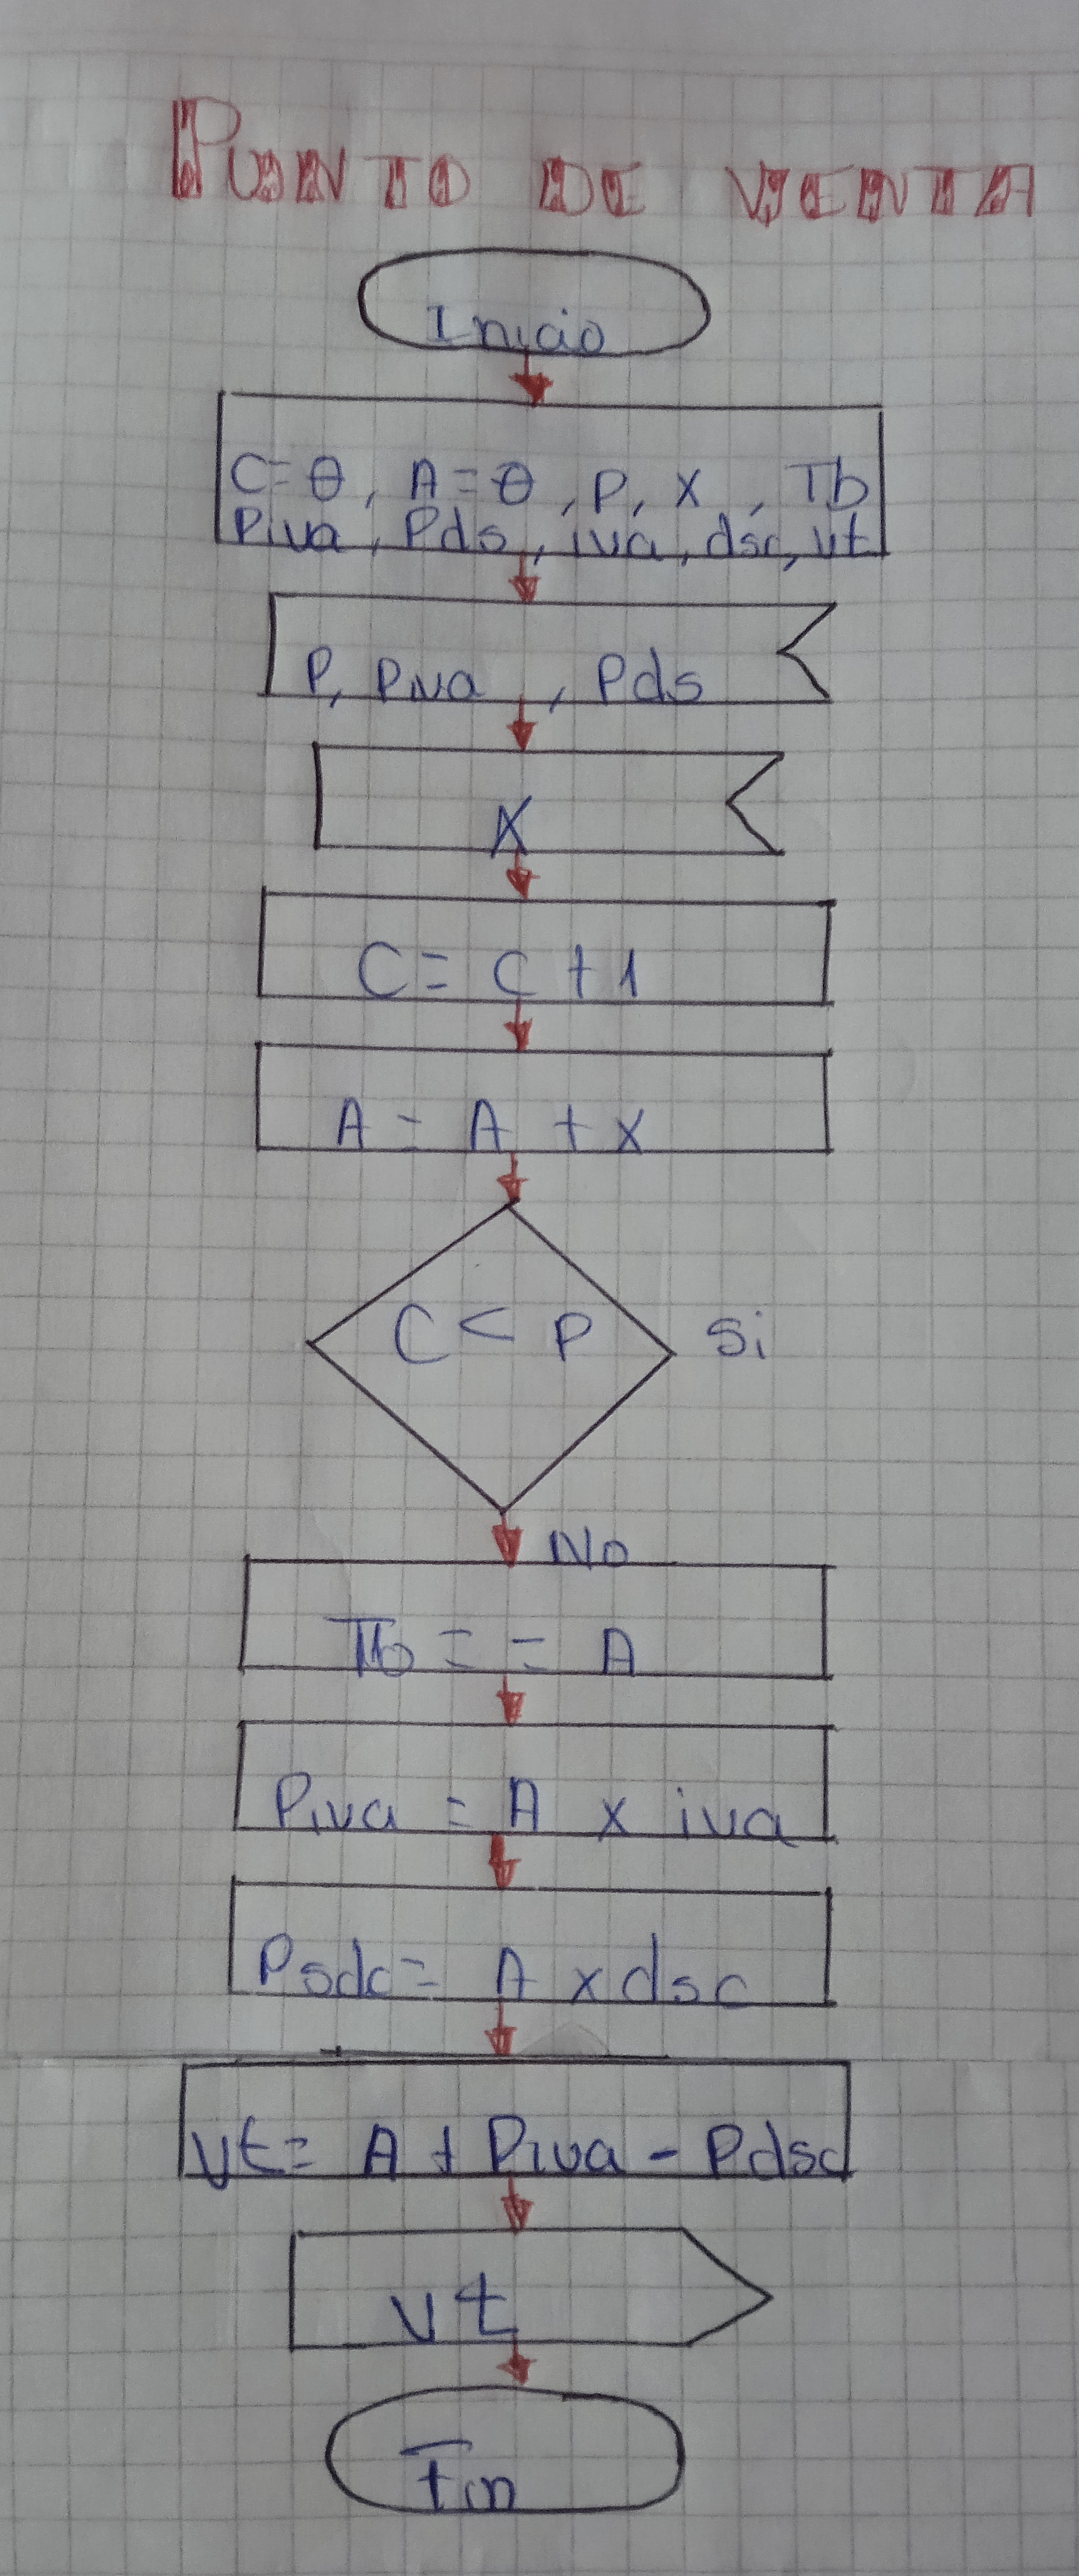 PUNTO DE VENTA
Inicio
C=0, A=0, P, X, Tb
Piva, Pds, iva, dsc, vt
P, Piva, Pds
X
C= C+1
A= A + X
C< P Si
No
Tb = = A
Piva = A x iva
Psdc= A x dsc
Vt= A + Piva - Pdsc
vt
Fin